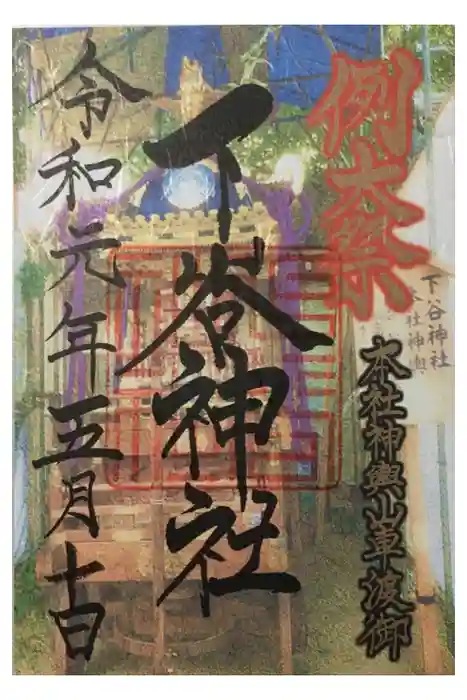 例大祭
本社神輿山車渡御
下谷神社
令和元年五月十日
下谷神社
本社神輿